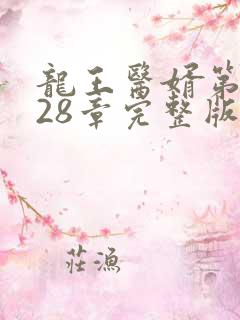 龍王醫婿第
28章完整版
莊漁